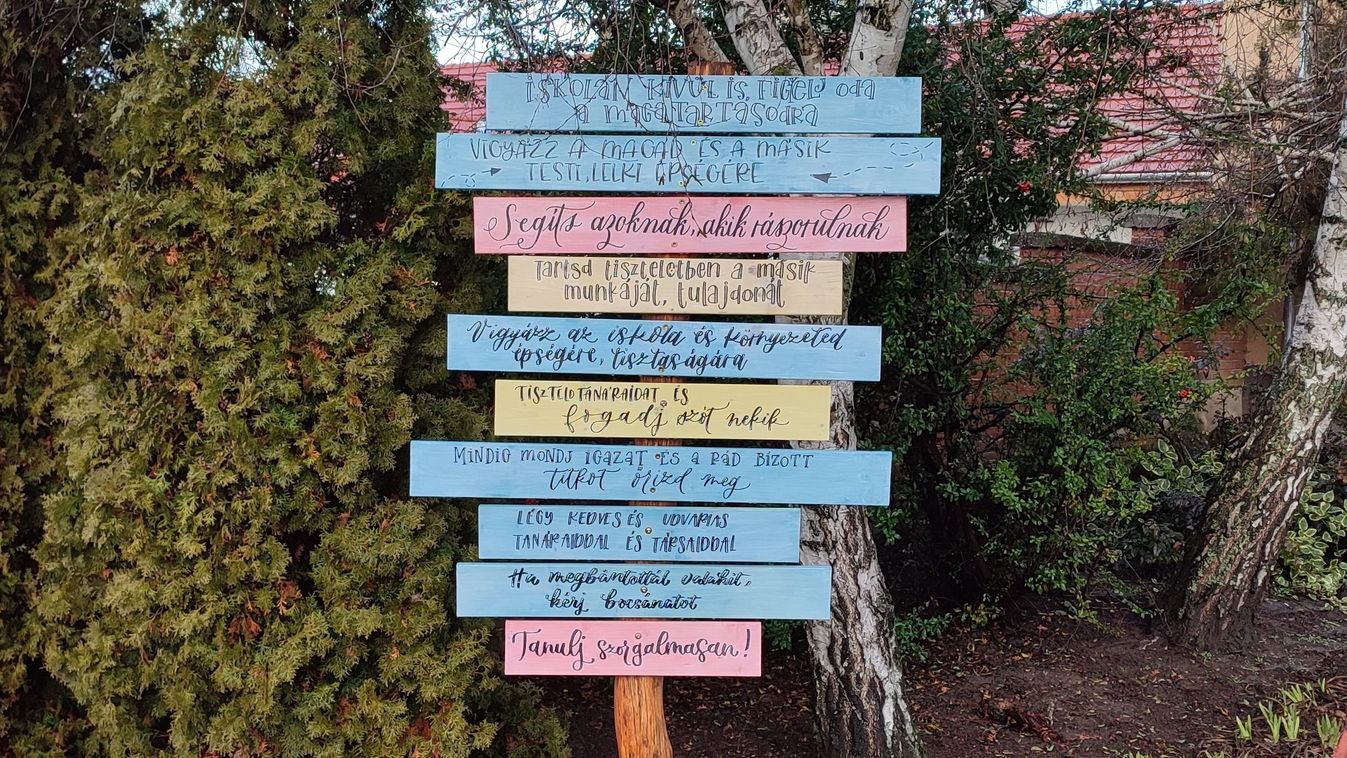 ISKOLÁN KÍVÜL IS FIGYELJ ODA
A MAGATARTÁSODRA
VIGYÁZZ A MAGAD ÉS A MÁSIK
TESTI, LELKI ÉPSÉGÉRE
Segíts azoknak, akik rászorulnak
Tartsd tiszteletben a másik
munkáját, tulajdonát
Vigyázz az iskola és környezeted
épségére, tisztaságára
TISZTELD TANÁRAIDAT ÉS
fogadj szót nekik
MINDIG MONDJ IGAZAT ÉS A RÁD BÍZOTT
titkot őrizd meg
LÉGY KEDVES ÉS UDVARIAS
TANÁRAIDDAL ÉS TÁRSAIDDAL
Ha megbántottál valakit,
kérj bocsánatot
Tanulj szorgalmasan!